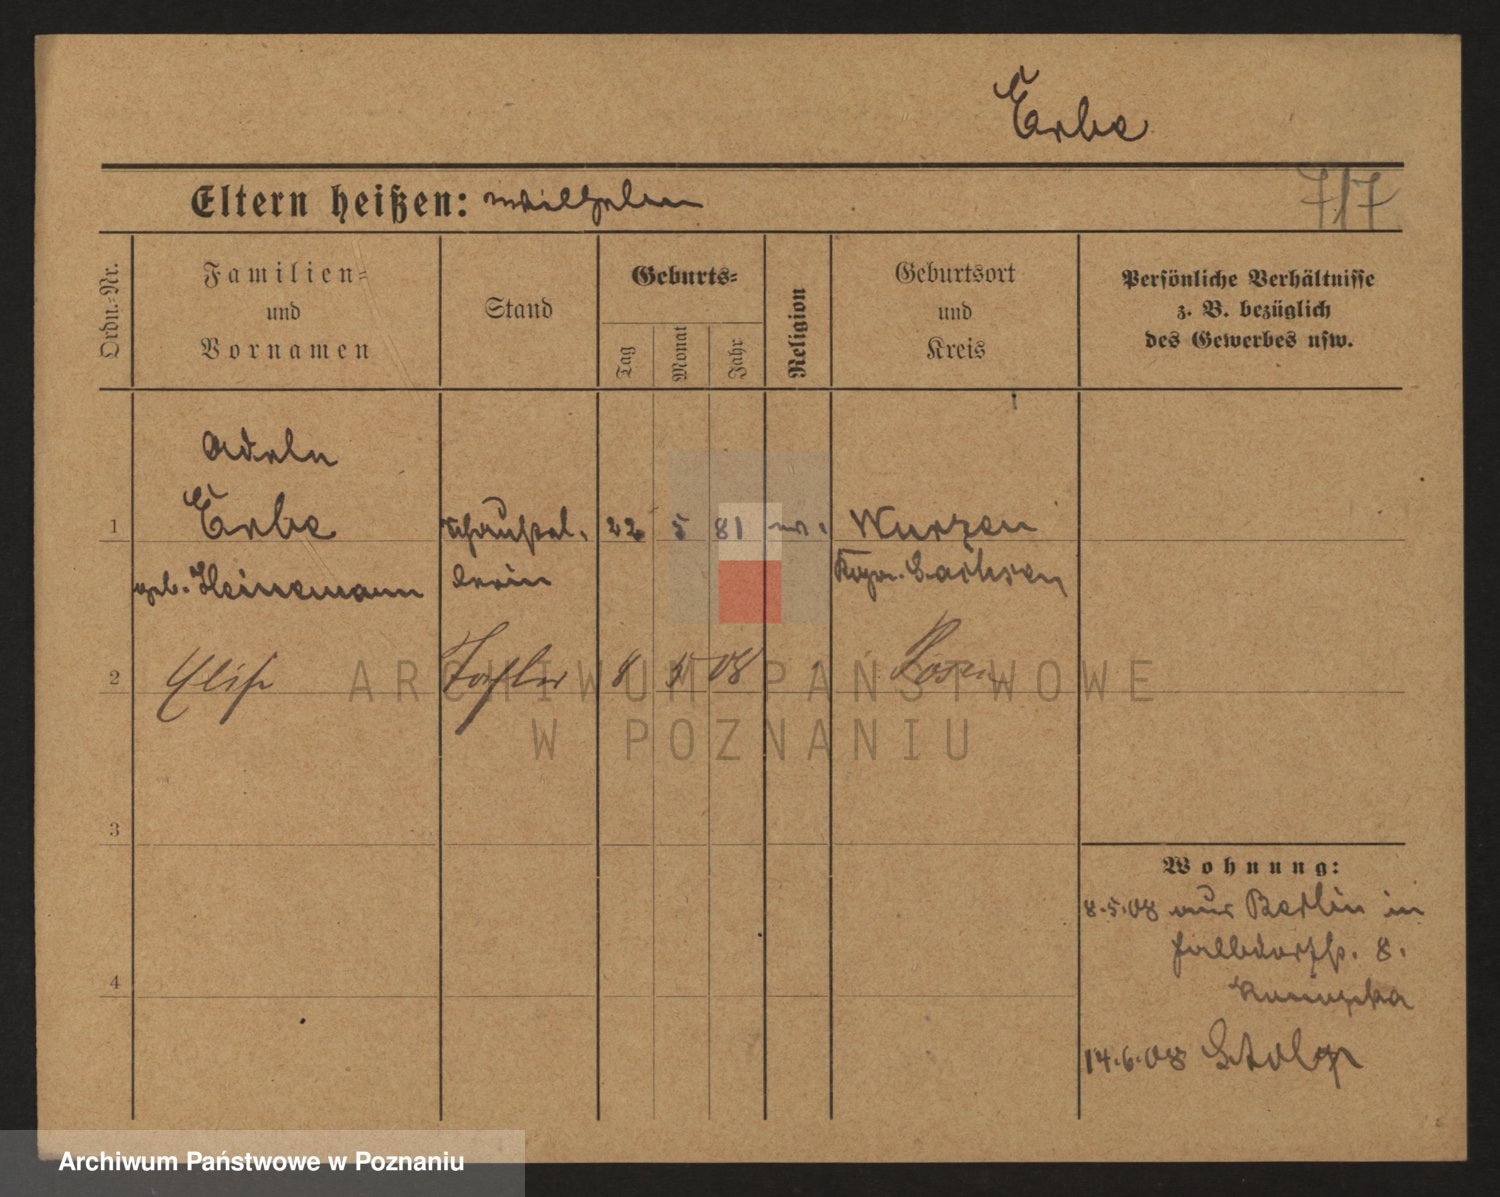 Erbe
Eltern heißen: Wilhelm
7/7
Ordn.=Nr.
Familien=
und
Vornamen
Stand
Geburts=
Tag
Monat
Jahr
Religion
Geburtsort
und
Kreis
Persönliche Verhältnisse
z. B. bezüglich
des Gewerbes usw.
Adele
1 Erbe Schauspie- 22 5 81 ev. Wurzen
geb. Heinemann lerin Kgr. Sachsen
2 Elise Tochter 8 5 08 Posen
ARCHIWUM PAŃSTWOWE
W POZNANIU
3
Wohnung:
8.5.08 aus Berlin in
8.
4
14.6.08 Stolp
Archiwum Państwowe w Poznaniu